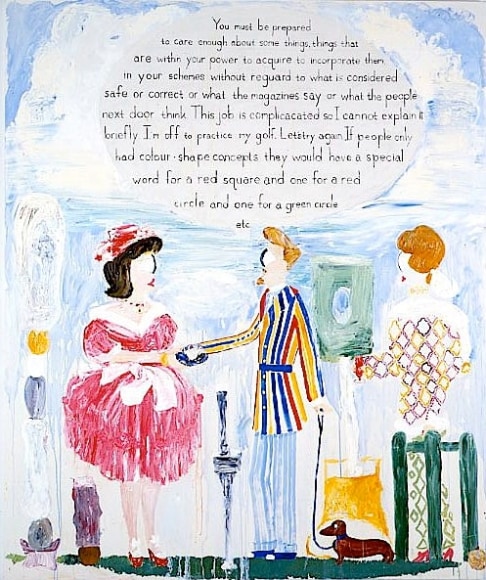 You must be prepared
to care enough about some things, things that
are within your power to acquire to incorporate them
in your schemes without reguard to what is considered
safe or correct or what the magazines say or what the people
next door think. This job is complicacated so I cannot explain it
briefly. I'm off to practice my golf. Letstry again. If people only
had colour-shape concepts they would have a special
word for a red square and one for a red
circle and one for a green circle
etc